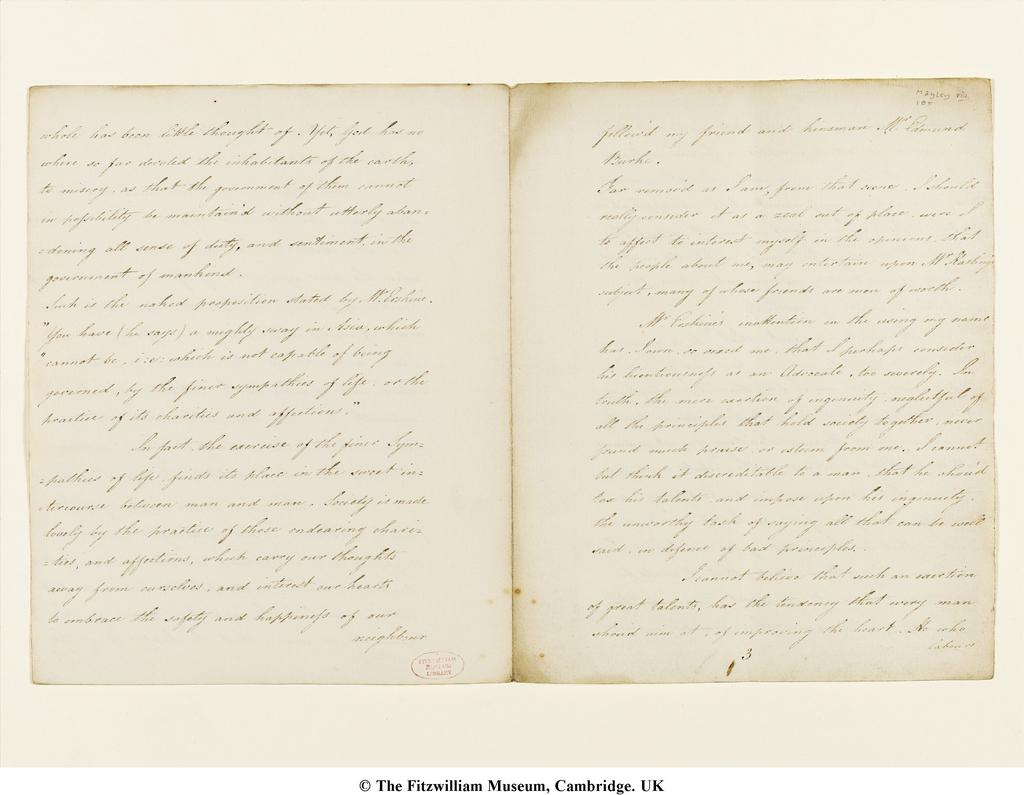 whole has been little thought of. Yet, God has no
where so far devoted the inhabitants of the earth,
to misery, as that the government of them cannot
in possibility be maintain'd without utterly aban=
=doning all sense of duty, and sentiment, in the
government of mankind.
Such is the naked proposition stated by Mr. Erskine.
"You have (he says) a mighty sway in Asia, which
"cannot be, i:e: which is not capable of being
governed, by the finer sympathies of life, or the
practice of its charities and affections."
In fact, the exercise of the finer Sym=
=pathies of life, finds its place in the sweet in=
=tercourse between man and man. Society is made
lovely by the practice of those endearing chari=
=ties, and affections, which carry our thoughts
away from ourselves, and interest our hearts
to embrace the safety and happiness of our
neighbour
FITZWILLIAM
MUSEUM
LIBRARY
Hayley VIII
100
follow'd my friend and kinsman Mr. Edmund
Burke.
Far remov'd as I am, from that scene, I should
really consider it as a zeal out of place, were I
to affect to interest myself in the opinions, that
the people about me, may entertain upon Mr. Hastings
subject, many of whose friends are men of worth.
Mr. Erskine's inattention in the using my name
has, I own, so vexed me, that I perhaps consider
his licentiousness as an Advocate, too severely. In
truth, the mere exertion of ingenuity, neglectful of
all the principles that hold society together, never
found much praise, or esteem from me. I cannot
but think it discreditable to a man, that he should
tax his talents, and impose upon his ingenuity,
the unworthy task of saying all that can be well
said, in defence of bad principles.
I cannot believe that such an exertion
of great talents, has the tendency that every man
should aim at, of improving the heart. He who
labours
3
© The Fitzwilliam Museum, Cambridge. UK